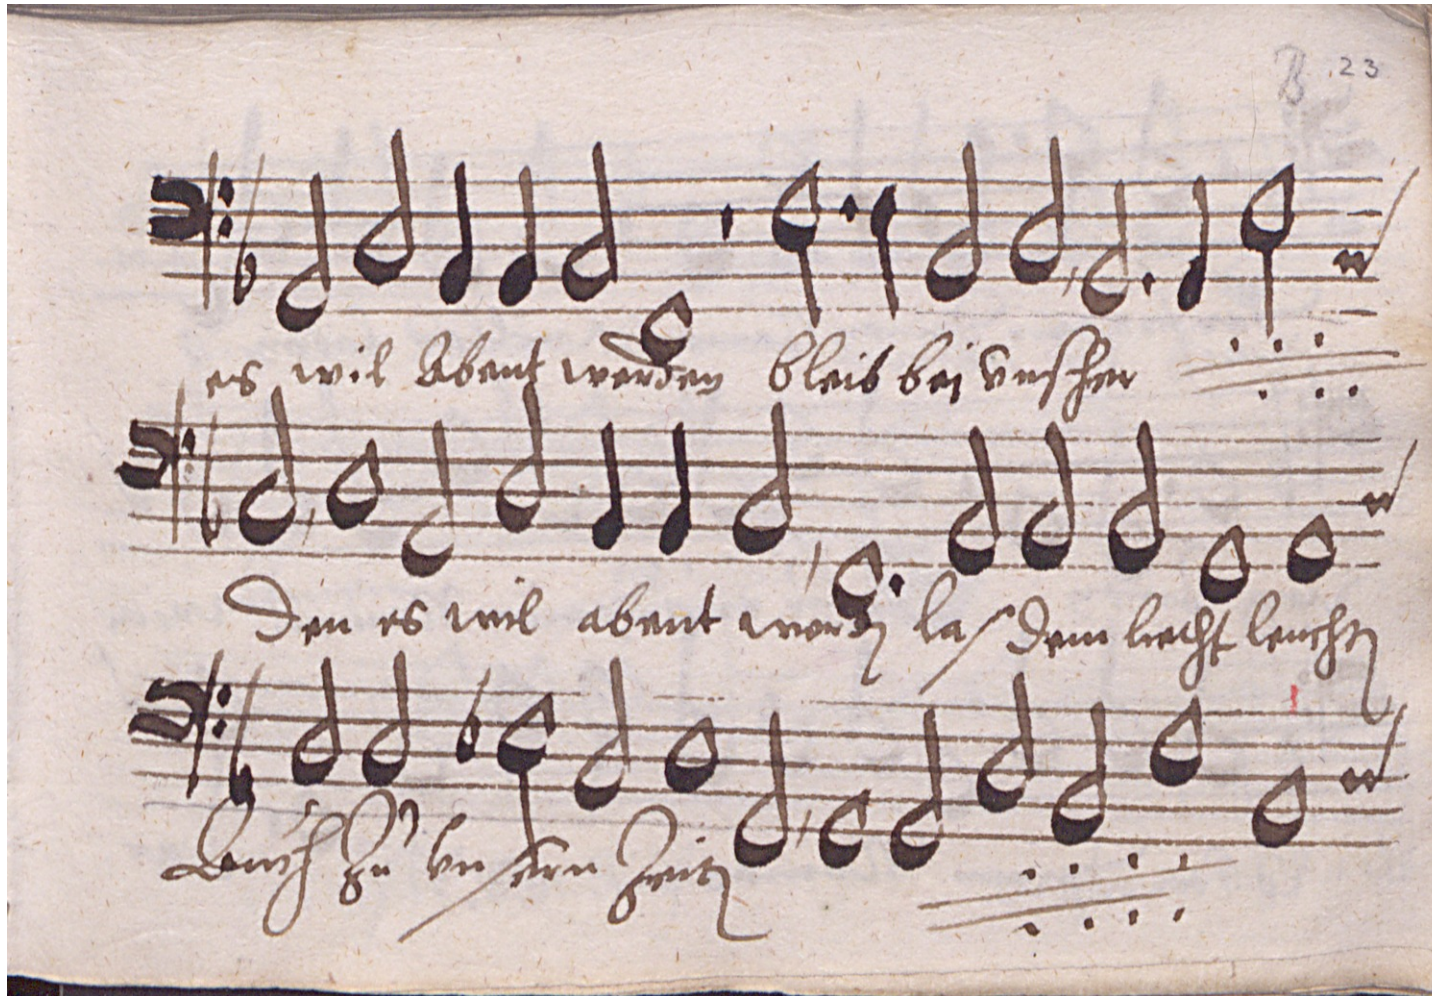 B 23
es wil Abent werden bleib bei vns her
Den es wil abent werdn las dein liecht leuchtn
Auch Zu vnsern Zeitn